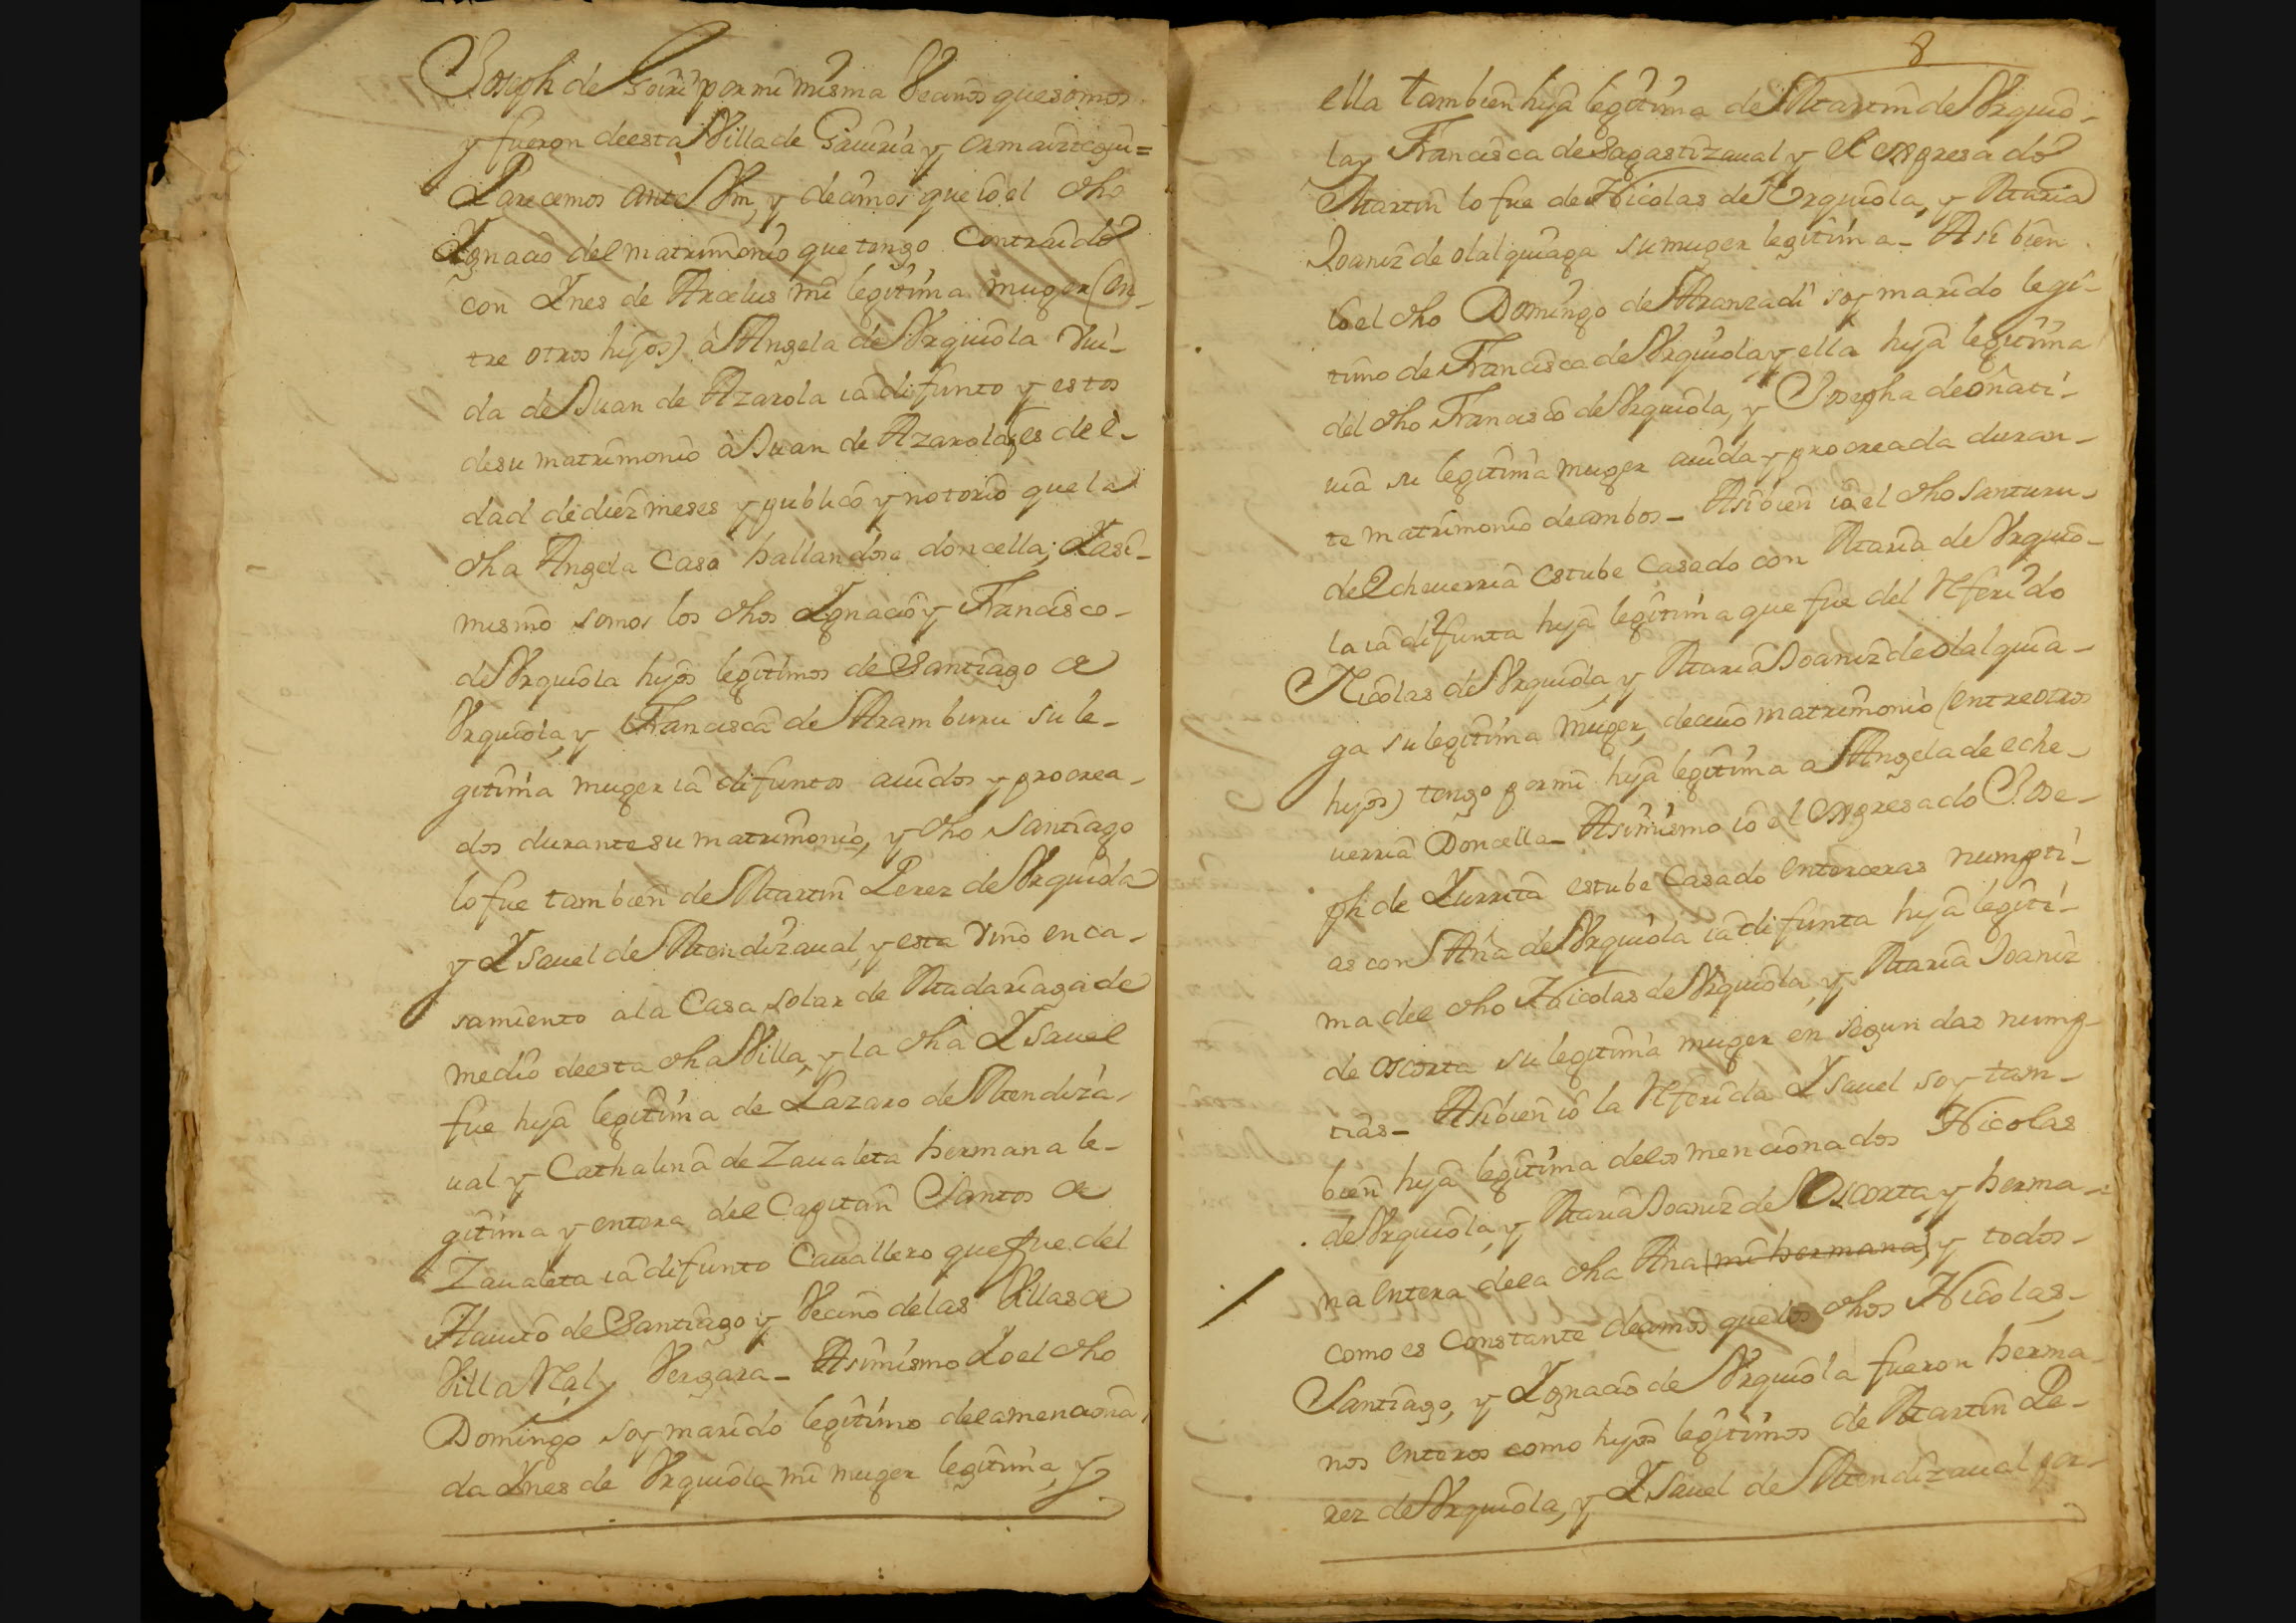 Joseph de Goiri por mi misma Vecinos que somos
y fueron deesta Villa de Gauiria y ormaiztegui=
Parecemos ante Vm, y decimos que io el dho
Ygnacio del matrimonio que tengo contraido
con Ynes de Arcelus mi legitima muger (en-
tre otros hijos) à Angela de Vrquiola viu-
da de Juan de Azarola ia difunto y estos
desu matrimonio à Juan de Azarola, es de e-
dad de diez meses y publico y notorio que la
dha Angela Caso hallandose doncella; Yasi-
mismo somos los dhos Ygnacio y Francisco-
de Vrquiola hijos legitimos de Santiago de
Vrquiola, y Francisca de Aramburu su le-
gitima muger ia difuntos auidos y procrea-
dos durante su matrimonio, y dho Santiago
lo fue tambien de Martin Perez de Vrquiola
y Ysauel de Mendizaual, y esta vino en ca-
samiento a la Casa solar de Madariaga de
medio deesta dha Villa, y la dha Ysauel
fue hija legitima de Lazaro de Mendiza-
ual y Cathalina de Zaualeta hermana le-
gitima y entera del Capitan Santos de
Zaualeta ia difunto Cauallero que fue del
Hauito de Santiago y Vecino de las Villas de
Villa Rl, y Vergara- Asimismo Yo el dho
Domingo soy marido legitimo dela menciona
da Ynes de Vrquiola mi muger legitima, y
8
ella tambien hija legitima de Martin de Vrquio-
la, y Francisca de Sagastizaual y el expresado
Martin lo fue de Nicolas de Vrquiola, y Maria
Joaniz de olalquiaga su muger legitima- Asi bien
io el dho Domingo de Aranzadi soy marido legi-
timo de Francisca de Vrquiola, y ella hija legitima
del dho Francisco de Vrquiola, y Josepha de oñati-
uia su legitima muger auida y procreada duran-
te matrimonio de ambos- Asibien io el dho Santuru-
de Echeuerria estube Casado con Maria de Vrquio-
la ia difunta hija legitima que fue del Referido
Nicolas de Vrquiola, y Maria Joaniz de olalquia-
ga su legitima muger, de cuio matrimonio (entre otros
hijos) tengo por mi hija legitima a Angela de eche-
uerria Doncella- Asimismo io el expresado Jose-
ph de Yurrita estube Casado en terceras numpti-
as con Ana de Vrquiola ia difunta hija legiti-
ma del dho Nicolas de Vrquiola, y Maria Joaniz
de oscorta su legitima muger en segundas nump-
tias- Asibien io la Referida Ysauel soy tam-
bien hija legitima delos mencionados Nicolas
de Vrquiola, y Maria Joaniz de Oscorta, y herma-
na entera dela dha Ana (mi hermana) y todos-
como es constante decimos que los dhos Nicolas,
Santiago, y Ygnacio de Vrquiola fueron herma-
nos enteros como hijos legitimos de Martin Pe-
rez de Vrquiola, y Ysauel de Mendizaual por-